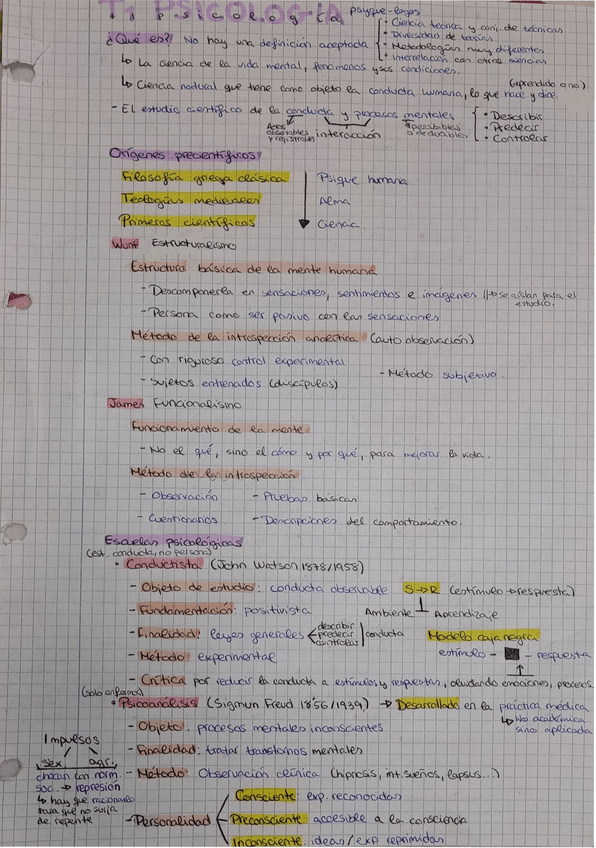 T1 PSICOLOGÍA psyque-logos
¿Qué es? No hay una definición aceptada
• Ciencia teórica y conj. de técnicas
• Diversidad de teorías
• Metodologías muy diferentes
• Interrelación con otras ciencias
↳ La ciencia de la vida mental, fenómenos y sus condiciones.
↳ Ciencia natural que tiene como objeto la conducta humana, lo que hace y dice. (aprendido o no)
- El estudio científico de la conducta y procesos mentales
• Describir
• Predecir
• Controlar
Actos observables y registrables
interacción
o deducibles
Orígenes precientíficos
Filosofía griega clásica Psique humana
Teologías medievales Alma
Primeros científicos Ciencia
Wunt Estructuralismo
Estructura básica de la mente humana
- Descomponerla en sensaciones, sentimientos e imágenes || → se aíslan para el estudio.
- Persona como ser pasivo con las sensaciones
Método de la introspección analítica (auto observación)
- Con riguroso control experimental
- Sujetos entrenados (discípulos) - Método subjetivo.
James Funcionalismo
Funcionamiento de la mente
- No el qué, sino el cómo y por qué, para mejorar la vida.
Método de la introspección
- Observación - Pruebas básicas
- Cuestionarios - Descripciones del comportamiento.
Escuelas psicológicas
(est. conducta, no persona)
• Conductista (John Watson 1878/1958)
- Objeto de estudio: conducta observable S→R (estímulo → respuesta)
- Fundamentación: positivista Ambiente Aprendizaje
- Finalidad: leyes generales describir predecir controlar conducta Modelo caja negra
- Método: experimental estímulo - ■ - respuesta
- Crítica por reducir la conducta a estímulos y respuestas, olvidando emociones, procesos
(solo enfermos)
• Psicoanálisis (Sigmun Freud 1856/1939) → Desarrollado en la práctica médica
↳ No académica sino aplicada
- Objeto: procesos mentales inconscientes
- Finalidad: tratar transtornos mentales
- Método: Observación clínica (hipnosis, int. sueños, lapsus...)
Impulsos
sex. agr.
chocan con norm.
soc. → represión
↳ hay que
para que no surja
de repente
- Personalidad
Consciente: exp. reconocidas
Preconsciente: accesible a la consciencia
Inconsciente: ideas/exp reprimidas